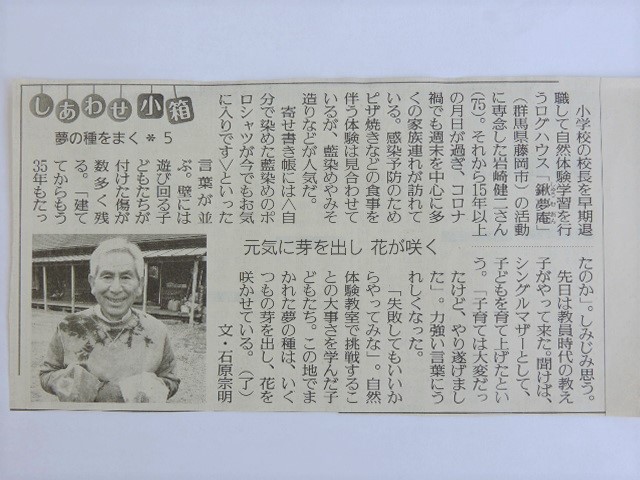 しあわせ小箱
夢の種をまく＊5
元気に芽を出し 花が咲く
小学校の校長を早期退
職して自然体験学習を行
うログハウス「鍬夢庵」
（群馬県藤岡市）の活動
に専念した岩崎健二さん
（75）。それから15年以上
の月日が過ぎ、コロナ
禍でも週末を中心に多
くの家族連れが訪れて
いる。感染予防のため
ピザ焼きなどの食事を
伴う体験は見合わせて
いるが、藍染めやみそ
造りなどが人気だ。
寄せ書き帳には〈自
分で染めた藍染めのポ
ロシャツが今でもお気
に入りです〉といった
言葉が並
ぶ。壁には
遊び回る子
どもたちが
付けた傷が
数多く残
る。「建て
てからもう
35年もたっ
たのか」。しみじみ思う。
先日は教員時代の教え
子がやって来た。聞けば、
シングルマザーとして、
子どもを育て上げたとい
う。「子育ては大変だっ
たけど、やり遂げまし
た」。力強い言葉にう
れしくなった。
「失敗してもいいか
らやってみな」。自然
体験教室で挑戦するこ
との大事さを学んだ子
どもたち。この地でま
かれた夢の種は、いく
つもの芽を出し、花を
咲かせている。（了）
文・石原宗明